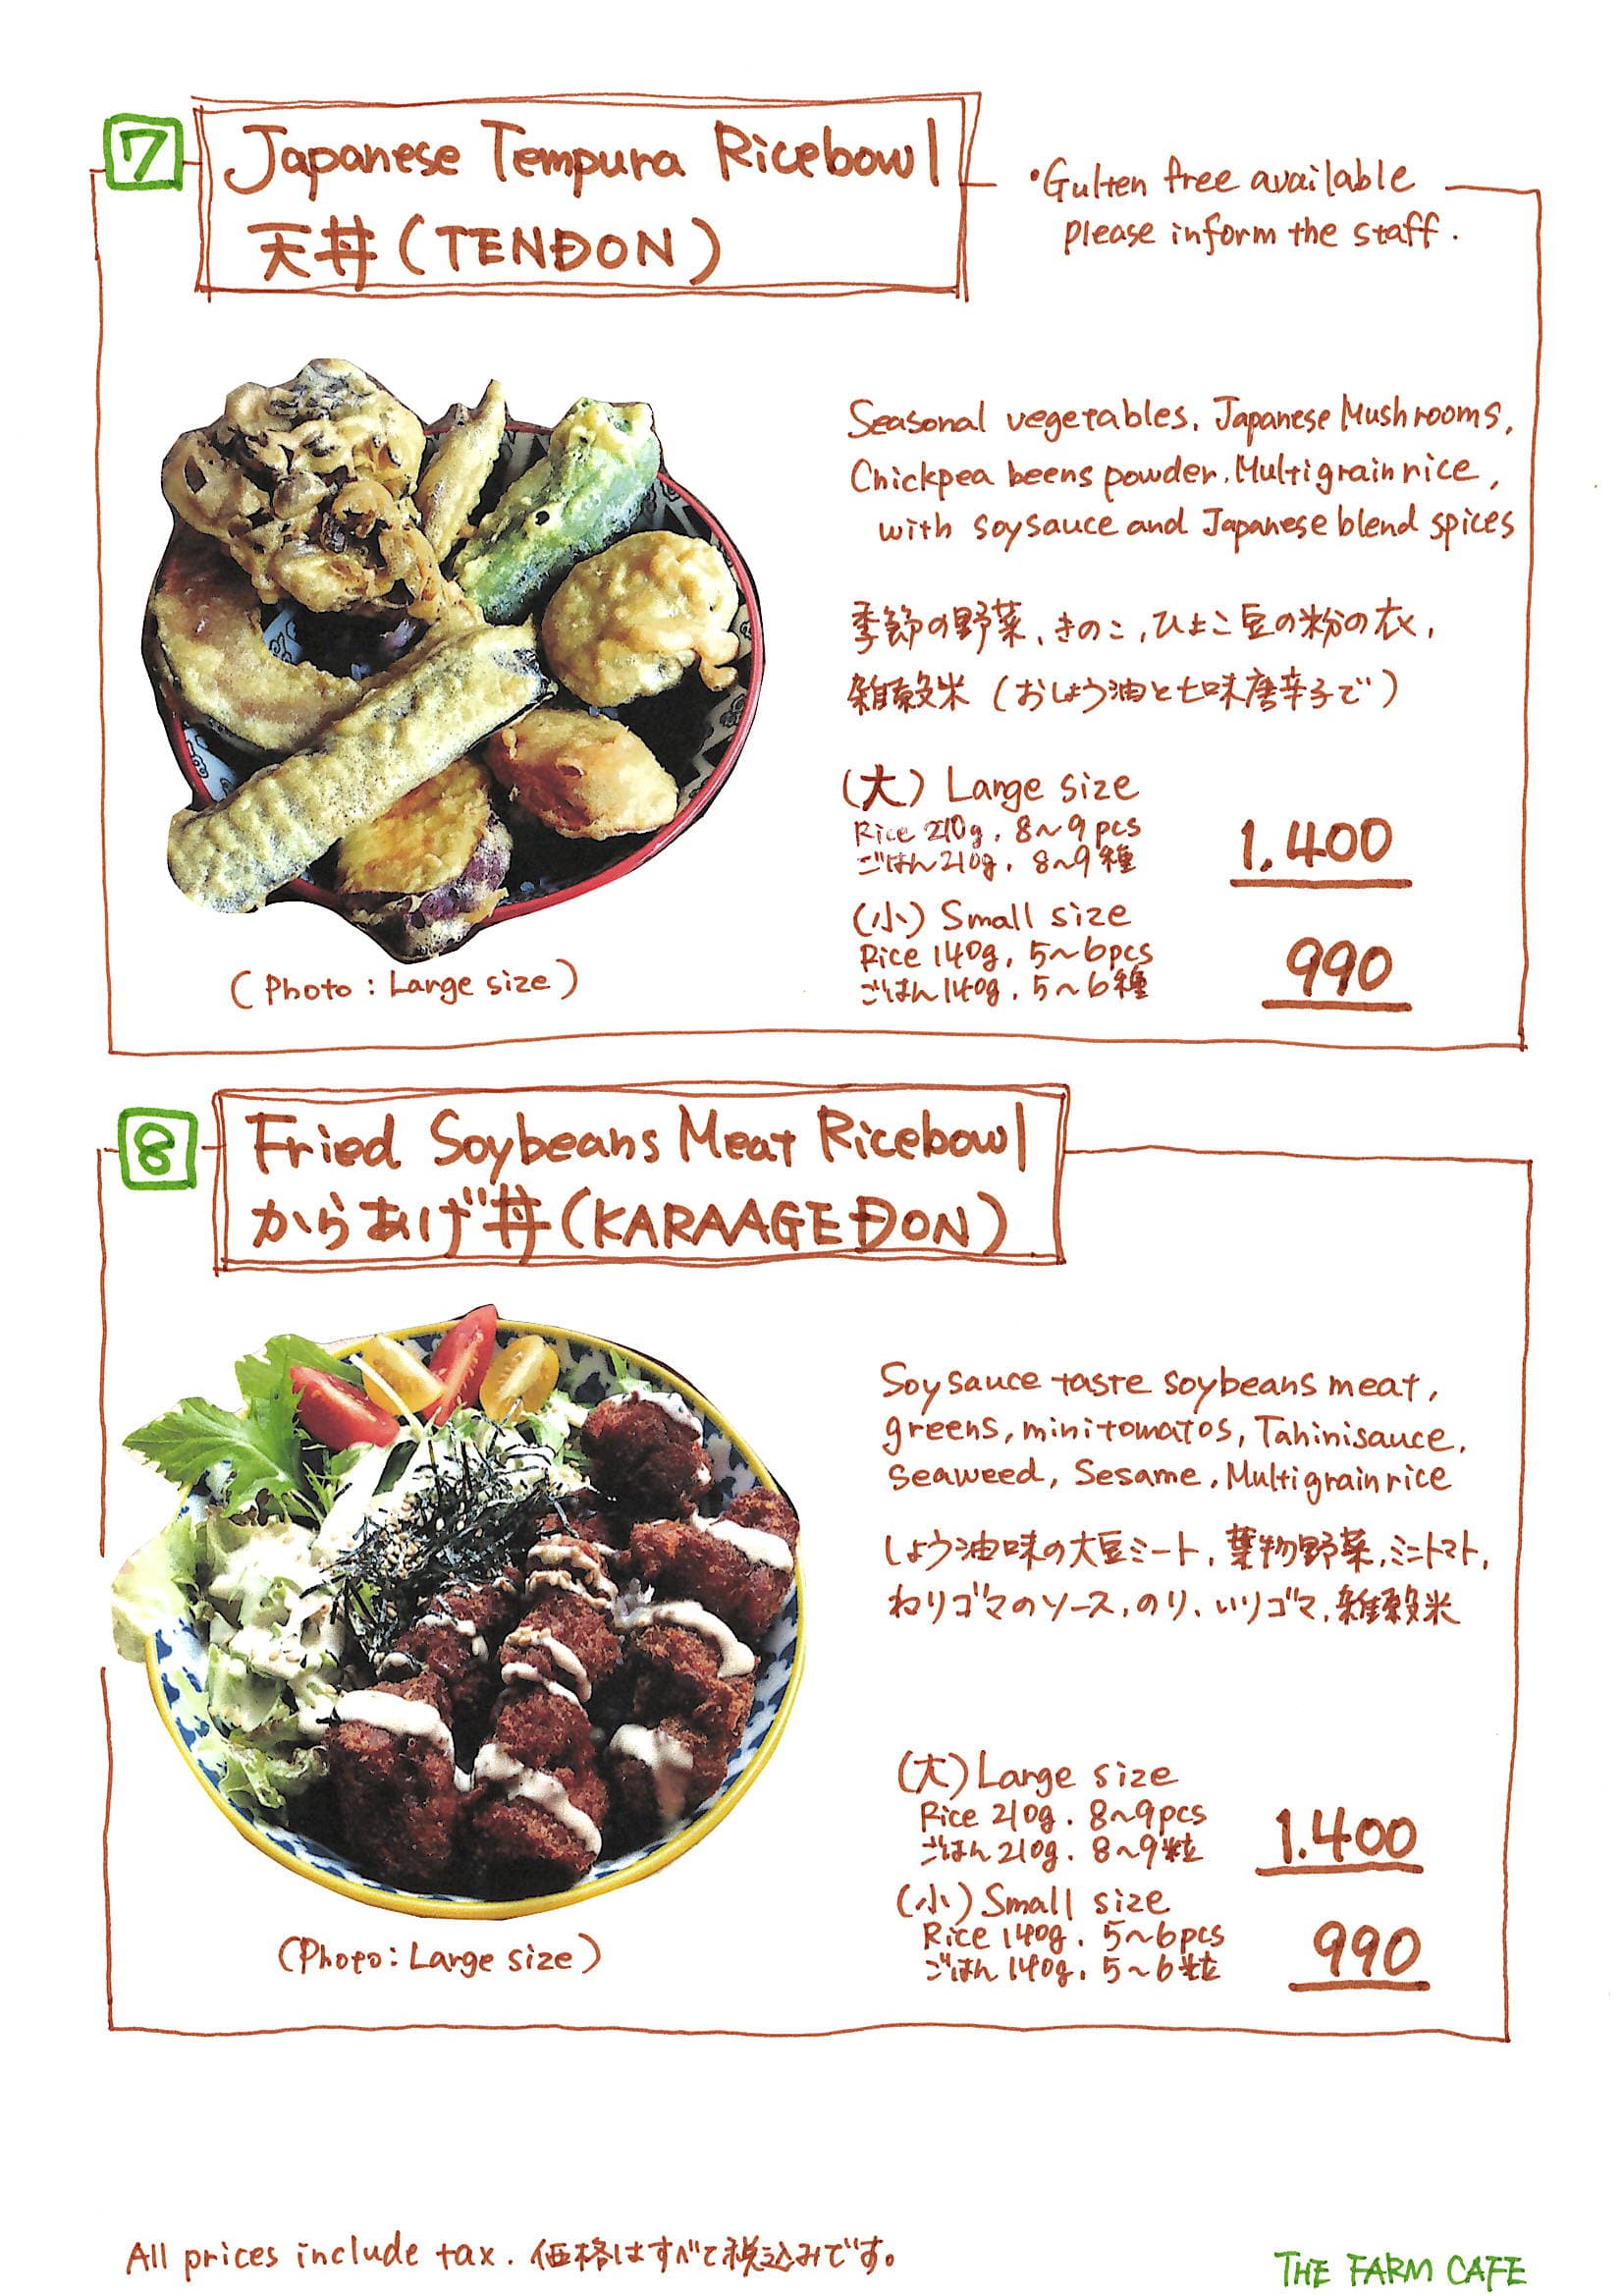 7
Japanese Tempura Ricebowl
天丼(TENDON)
・Gulten free available
please inform the staff.
Seasonal vegetables, Japanese Mushrooms,
Chickpea beens powder, Multigrain rice,
with soysauce and Japanese blend spices
季節の野菜、きのこ、ひよこ豆の粉の衣、
雑穀米(おしょう油と七味唐辛子で)
(大) Large size
Rice 210g, 8~9pcs
ごはん210g, 8~9種
1.400
(小) Small size
Rice 140g, 5~6pcs
ごはん140g, 5~6種
990
(Photo: Large size)
8
Fried Soybeans Meat Ricebowl
からあげ丼(KARAAGE DON)
Soysauce taste soybeans meat,
greens, minitomatos, Tahinisauce,
Seaweed, Sesame, Multigrain rice
しょう油味の大豆ミート、葉物野菜、ミニトマト、
ねりゴマのソース、のり、いりゴマ、雑穀米
(大) Large size
Rice 210g, 8~9pcs
ごはん210g, 8~9粒
1.400
(小) Small size
Rice 140g, 5~6pcs
ごはん140g, 5~6粒
990
(Photo: Large size)
All prices include tax. 価格はすべて税込みです。
THE FARM CAFE